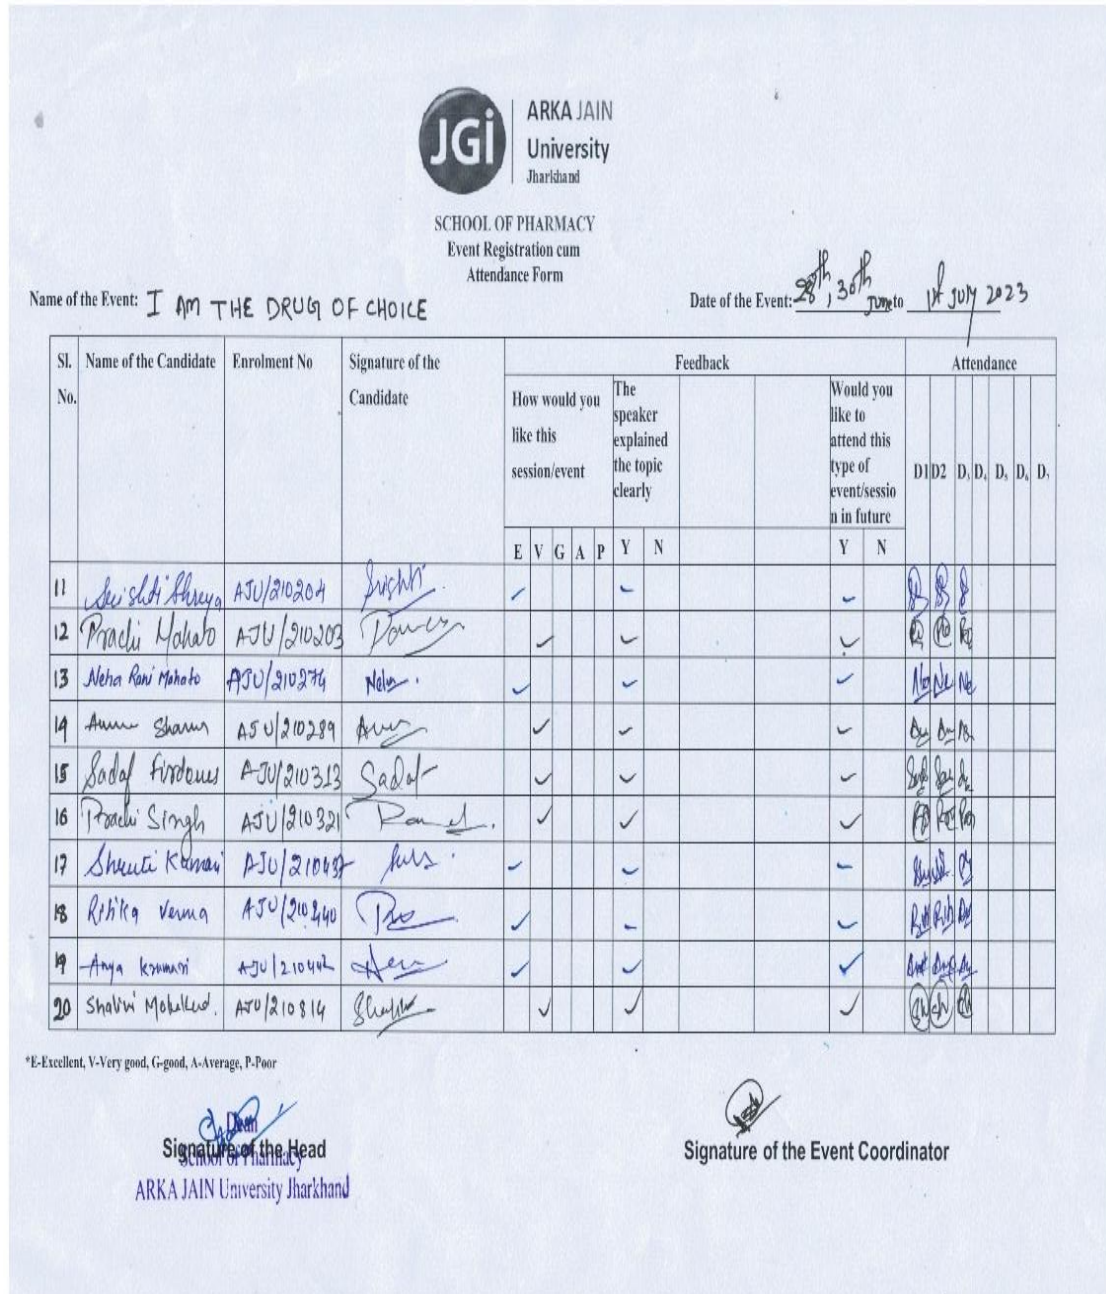 JGi
ARKA JAIN
University
Jharkhand
SCHOOL OF PHARMACY
Event Registration cum
Attendance Form
Name of the Event: I AM THE DRUG OF CHOICE
Date of the Event: 28th, 30th June to 1st JULY 2023
Sl. No. Name of the Candidate Enrolment No Signature of the Candidate Feedback Attendance
How would you like this session/event
The speaker explained the topic clearly
Would you like to attend this type of event/session in future
D1 D2 D, D, D, D, D,
E V G A P Y N Y N
11 Srishti Shreya AJU/210204 Srishti
12 Prachi Mahato AJU/210203
13 Neha Rani Mahato AJU/210274 Neha
14 Sharma AJU/210289
15 Sadaf Firdous AJU/210313 Sadaf
16 Prachi Singh AJU/210321
17 Shruti Kumari
18 Ritika Verma AJU/210440
19 Anya Kumari AJU/210442
20 Shalini AJU/210814
*E-Excellent, V-Very good, G-good, A-Average, P-Poor
Dean
Signature of the Head
School of Pharmacy
ARKA JAIN University Jharkhand
Signature of the Event Coordinator